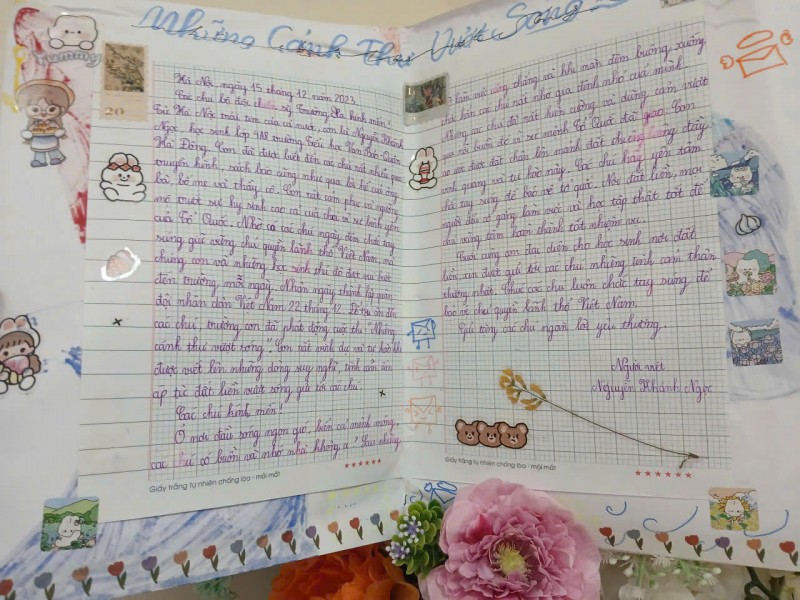 Những Cánh Thư Vượt Sóng
Yummy
20
Hà Nội, ngày 15 tháng 12 năm 2023
Các chú bộ đội chiến sỹ Trường Sa kính mến!
Từ Hà Nội trái tim của cả nước, con là Nguyễn Khánh
Ngọc, học sinh lớp 4A8 trường Tiểu học Văn Bảo - Quận
Hà Đông. Con đã được biết đến các chú rất nhiều qua
truyền hình, sách báo cũng như qua lời kể của ông
bà, bố mẹ và thầy cô. Con rất cảm phục và ngưỡng
mộ trước sự hy sinh cao cả của các chú vì sự bình yên
của Tổ Quốc. Nhờ có các chú ngày đêm chắc tay
súng giữ vững chủ quyền lãnh thổ Việt Nam mà
chúng con và những học sinh phố đô đất vui bước
đến trường mỗi ngày. Nhân ngày thành lập quân
đội nhân dân Việt Nam 22 tháng 12. Để tri ân đến
các chú, trường con đã phát động cuộc thi "Những
cánh thư vượt sóng". Con rất vinh dự và tự hào khi
được viết lên những dòng suy nghĩ, tình cảm ấm
áp từ đất liền vượt sóng gửi tới các chú.
Các chú kính mến!
Ở nơi đầu sóng ngọn gió, biển cả mênh mông,
các chú có buồn và nhớ nhà không ạ? Sau những
Giấy trắng tự nhiên chống lóa - mỏi mắt
căng thẳng và khi màn đêm buông xuống
hẳn các chú rất nhớ gia đình nhỏ của mình.
Nhưng các chú đã rất kiên cường và dũng cảm vượt
qua nỗi buồn đó vì sứ mệnh Tổ Quốc đã giao. Con
ao ước được đặt chân lên mảnh đất thiêng liêng đầy
vinh quang và tự hào này. Các chú hãy yên tâm
chắc tay súng để bảo vệ tổ quốc. Nơi đất liền, mọi
người luôn cố gắng làm việc và học tập thật tốt để
chú vững tâm hoàn thành tốt nhiệm vụ.
Cuối cùng con đại diện cho học sinh nơi đất
liền xin được gửi tới các chú những tình cảm thân
thương nhất. Chúc các chú luôn chắc tay súng để
bảo vệ chủ quyền lãnh thổ Việt Nam.
Gửi tặng các chú ngàn lời yêu thương.
Người viết
Nguyễn Khánh Ngọc
Giấy trắng tự nhiên chống lóa - mỏi mắt